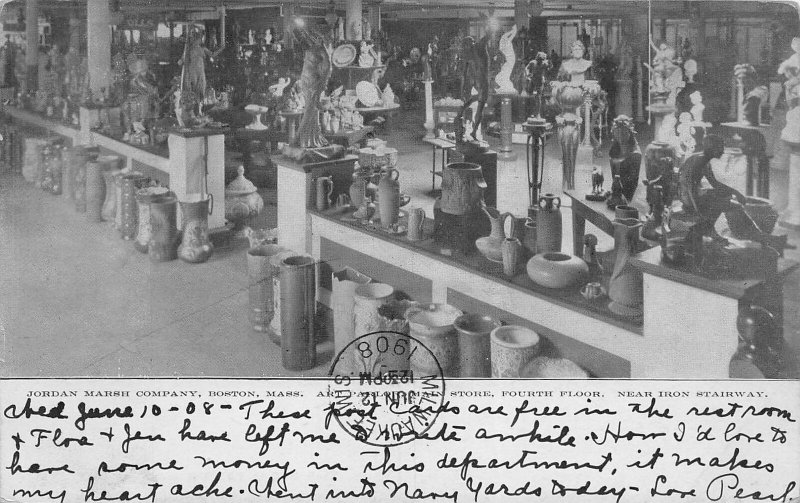 JORDAN MARSH COMPANY, BOSTON, MASS. ART PARLOR, MAIN STORE, FOURTH FLOOR. NEAR IRON STAIRWAY.
Wed June 10-08 - These post cards are free in the rest room
+ Floa + Jen have left me to write awhile. How I'd love to
have some money in this department, it makes
my heart ache. Went into Navy Yards today - Love Pearl
1908
JUN
MASS.